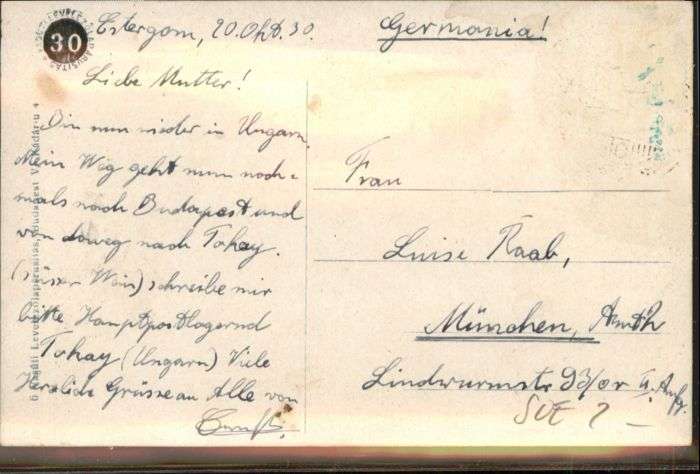 30
Estergom, 20. Okt. 30.
Germania!
Liebe Mutter!
Bin nun wieder in Ungarn.
Mein Weg geht nun noch-
mals nach Budapest und
von doweg nach Tokay.
(süsser Wein) schreibe mir
bitte Hauptpostlagernd
Tokay (Ungarn) Viele
Herzliche Grüsse an Alle von
Frau
Luise Raab,
München,
Lindwurmstr. 93/
Levelezőlapárusítás, Budapest V., Kádár-u 4